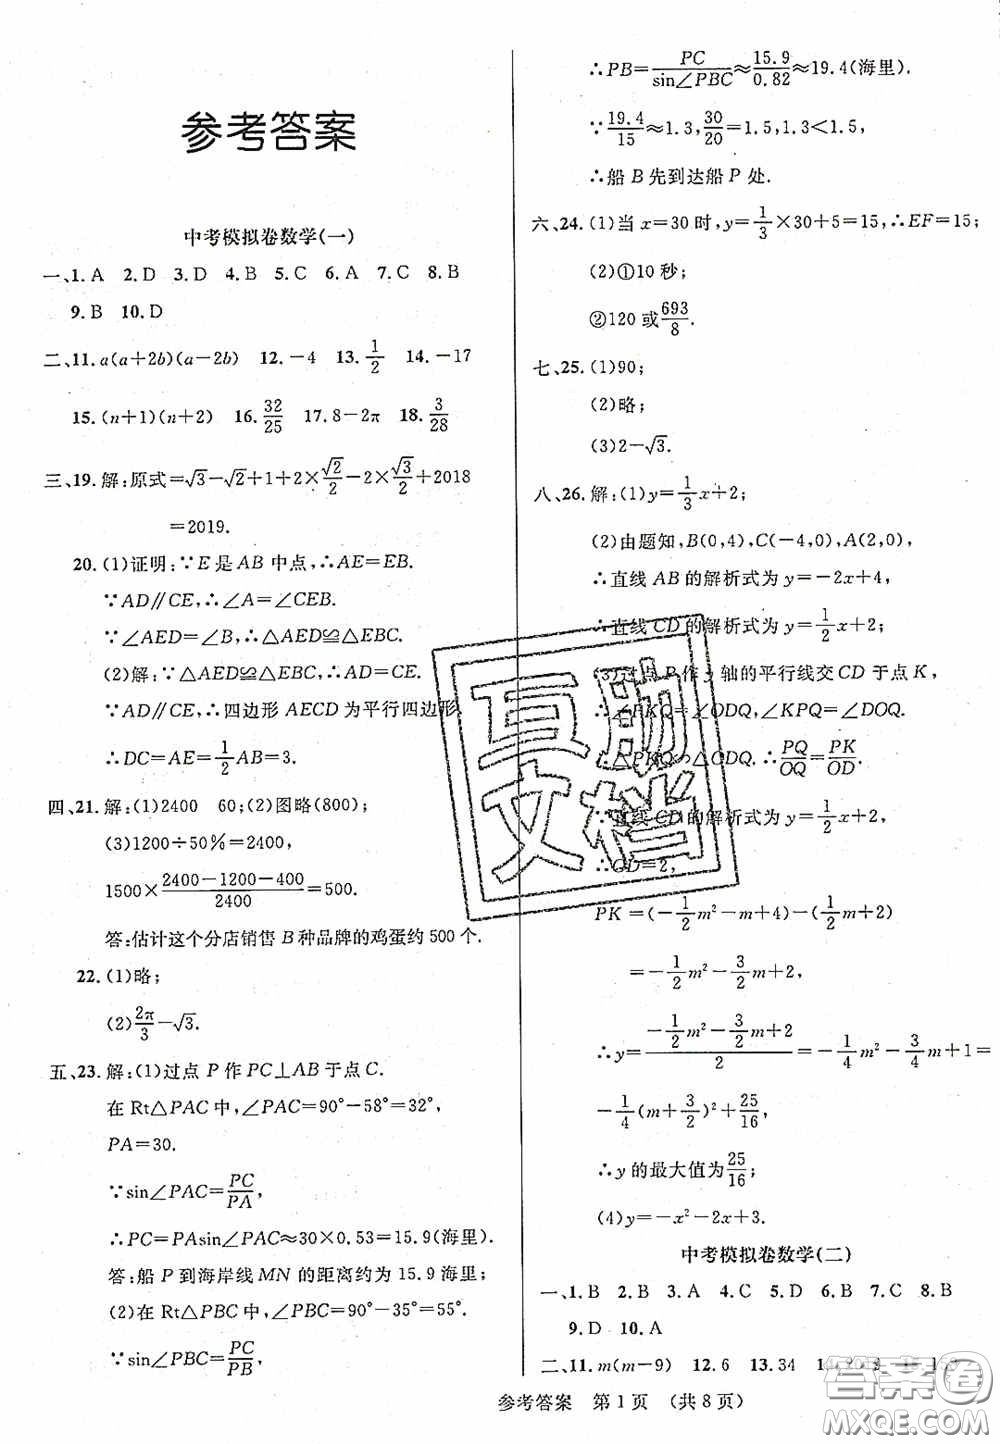 参考答案
中考模拟卷数学(一)
一、1.A 2.D 3.D 4.B 5.C 6.A 7.C 8.B
9.B 10.D
二、11.a(a+2b)(a-2b) 12.-4 13.1/2 14.-17
15.(n+1)(n+2) 16.32/25 17.8-2π 18.3/28
三、19.解:原式=√3-√2+1+2×√2/2-2×√3/2+2018
=2019.
20.(1)证明:∵E是AB中点,∴AE=EB.
∵AD∥CE,∴∠A=∠CEB.
∵∠AED=∠B,∴△AED≌△EBC.
(2)解:∵△AED≌△EBC,∴AD=CE.
∵AD∥CE,∴四边形AECD为平行四边形.
∴DC=AE=1/2AB=3.
四、21.解:(1)2400 60;(2)图略(800);
(3)1200÷50%=2400
1500×(2400-1200-400)/2400=500.
答:估计这个分店销售B种品牌的鸡蛋约500个.
22.(1)略;
(2)2π/3-√3.
五、23.解:(1)过点P作PC⊥AB于点C.
在Rt△PAC中,∠PAC=90°-58°=32°,
PA=30.
∵sin∠PAC=PC/PA,
∴PC=PAsin∠PAC≈30×0.53=15.9(海里).
答:船P到海岸线MN的距离约为15.9海里;
(2)在Rt△PBC中,∠PBC=90°-35°=55°,
∵sin∠PBC=PC/PB,
∴PB=PC/sin∠PBC≈15.9/0.82≈19.4(海里).
∵19.4/15≈1.3,30/20=1.5,1.3<1.5,
∴船B先到达船P处.
六、24.(1)当x=30时,y=1/3×30+5=15,∴EF=15;
(2)①10秒;
②120或693/8.
七、25.(1)90;
(2)略;
(3)2-√3.
八、26.解:(1)y=1/3x+2;
(2)由题知,B(0,4),C(-4,0),A(2,0),
∴直线AB的解析式为y=-2x+4,
∴直线CD的解析式为y=1/2x+2;
(3)过点P作y轴的平行线交CD于点K,
∴∠PKQ=∠ODQ,∠KPQ=∠DOQ.
∴△PKQ∽△ODQ.∴PQ/OQ=PK/OD.
∵直线CD的解析式为y=1/2x+2,
∴OD=2,
PK=(-1/2m²-m+4)-(1/2m+2)
=-1/2m²-3/2m+2,
∴y=(-1/2m²-3/2m+2)/2=-1/4m²-3/4m+1=
-1/4(m+3/2)²+25/16,
∴y的最大值为25/16;
(4)y=-x²-2x+3.
中考模拟卷数学(二)
一、1.B 2.B 3.A 4.C 5.D 6.B 7.C 8.B
9.D 10.A
二、11.m(m-9) 12.6 13.34
参考答案 第1页 (共8页)
互助文档
答案圈
MXQE.COM